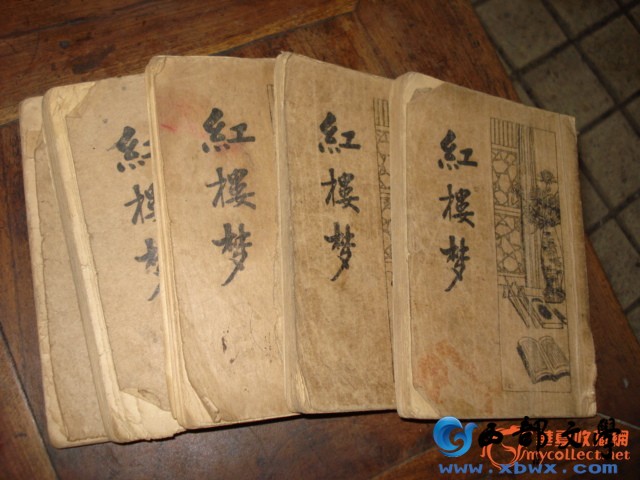 紅樓梦
紅樓梦
紅樓梦
紅樓梦
西部文學
www.xbwx.com
收藏網
mycollect.net